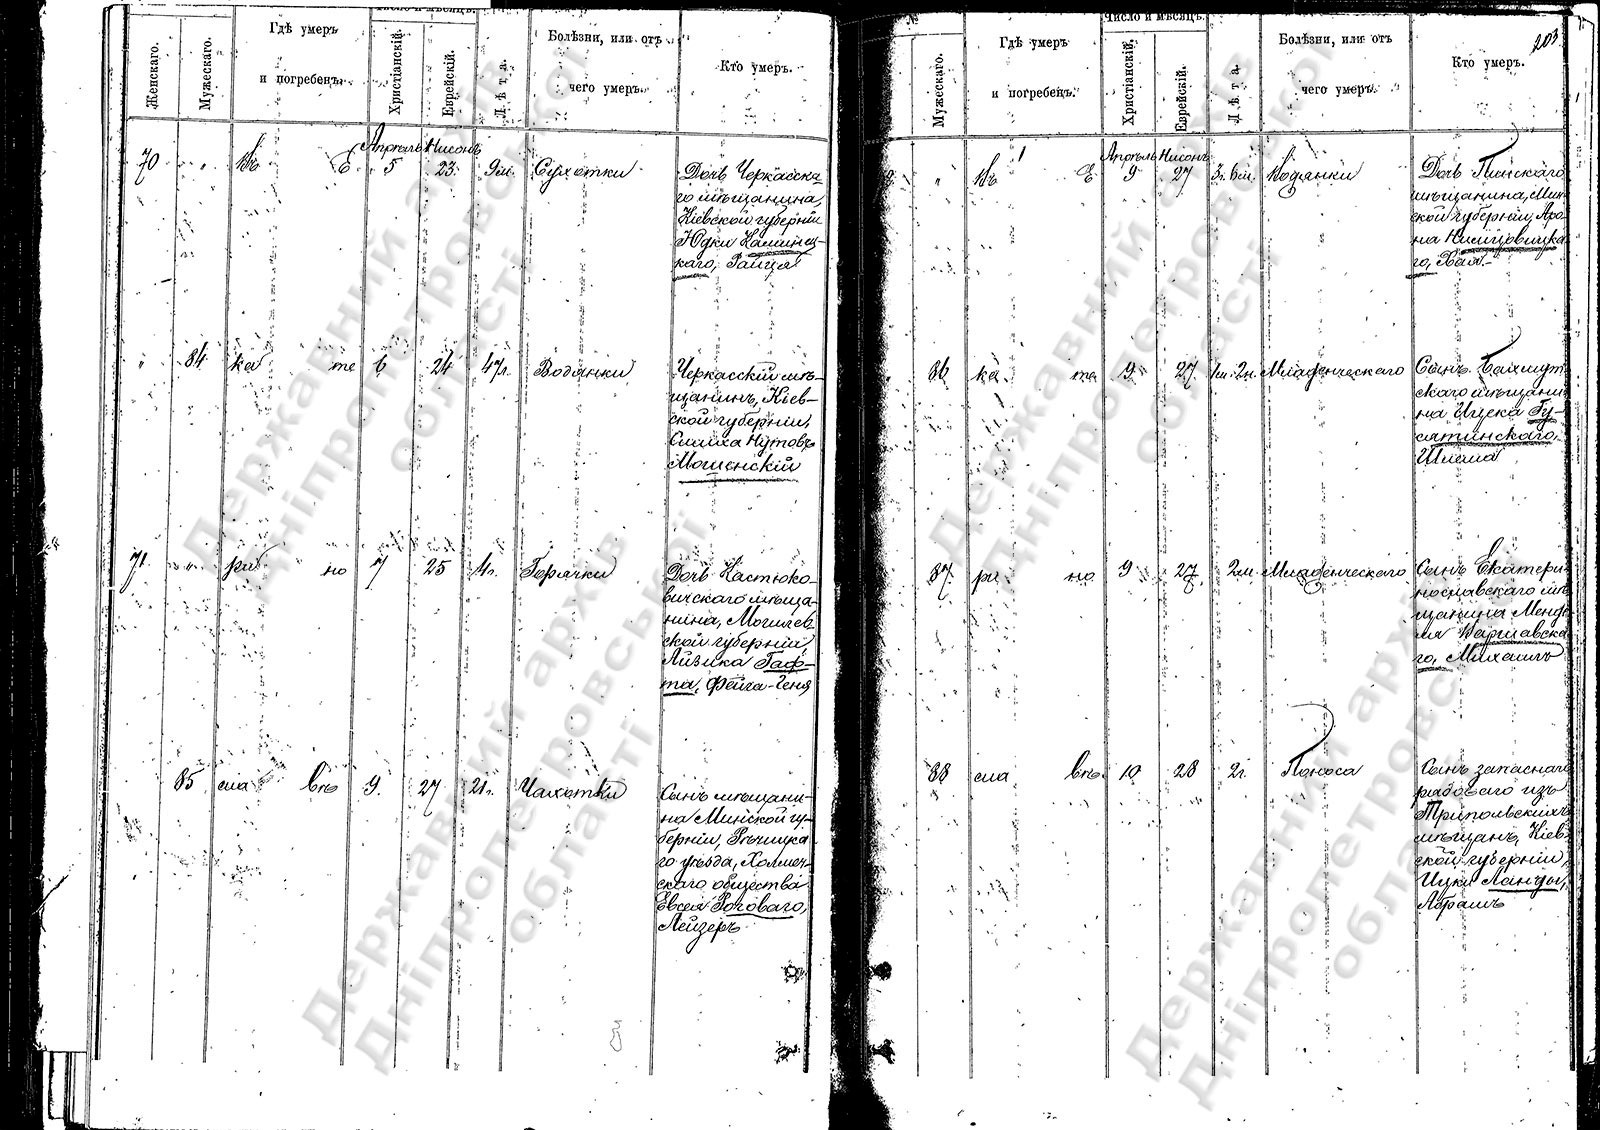 203
Женскаго.
Мужескаго.
Гдѣ умеръ
и погребенъ.
Число и мѣсяцъ.
Христіанскій.
Еврейскій.
Лѣта.
Болѣзни, или отъ
чего умеръ.
Кто умеръ.
Апрѣль Нисонъ
70 " Въ Е 5 23 9 м. Сухотки
Дочь Черкасска-
го мѣщанина,
Кіевской губерніи
Юдки Каминец-
каго,
" 84 ка те 6 24 47 л. Водянки
Черкасскій мѣ-
щанинъ, Кіев-
ской губерніи,
Мошенскій
71 " ри но 7 25 4 г. Горячки
Дочь Костюко-
вичскаго мѣща-
нина, Могилев
ской губерніи,
Айзика Гаф-
та, Фейга-Геня
85 сла въ 9 27 21 г. Чахотки
Сынъ мѣщани-
на Минской гу-
берніи, Рѣчицка
го уѣзда, Холмеч-
скаго общества
Евсея Роговаго,
Лейзеръ
Мужескаго.
Гдѣ умеръ
и погребенъ.
Число и мѣсяцъ.
Христіанскій.
Еврейскій.
Лѣта.
Болѣзни, или отъ
чего умеръ.
Кто умеръ.
Апрѣль Нисонъ
" Въ Е 9 27 3 г. 6 м. Водянки
Дочь Пинскаго
мѣщанина, Мин-
ской губерніи, Аро-
на
го, Хая.
86 ка те 9 27 1 м. 2 н. Младенческаго
Сынъ Бахмут-
скаго мѣщани-
на Ицека Гу-
сятинскаго,
Шлема
87 ри но 9 27 2 м. Младенческаго
Сынъ Екатери-
нославскаго мѣ-
щанина Менде
ля Варшавска
го, Михаилъ
88 сла въ 10 28 2 г. Поноса
Сынъ запаснаго
рядоваго изъ
Трипольскихъ
мѣщанъ, Кіев-
ской губерніи,
Ицки Ланцы,
Абрамъ
Державний архів
Дніпропетровської
області
Державний архів
Дніпропетровської
області
Державний архів
Дніпропетровської
області
Державний архів
Дніпропетровської
області